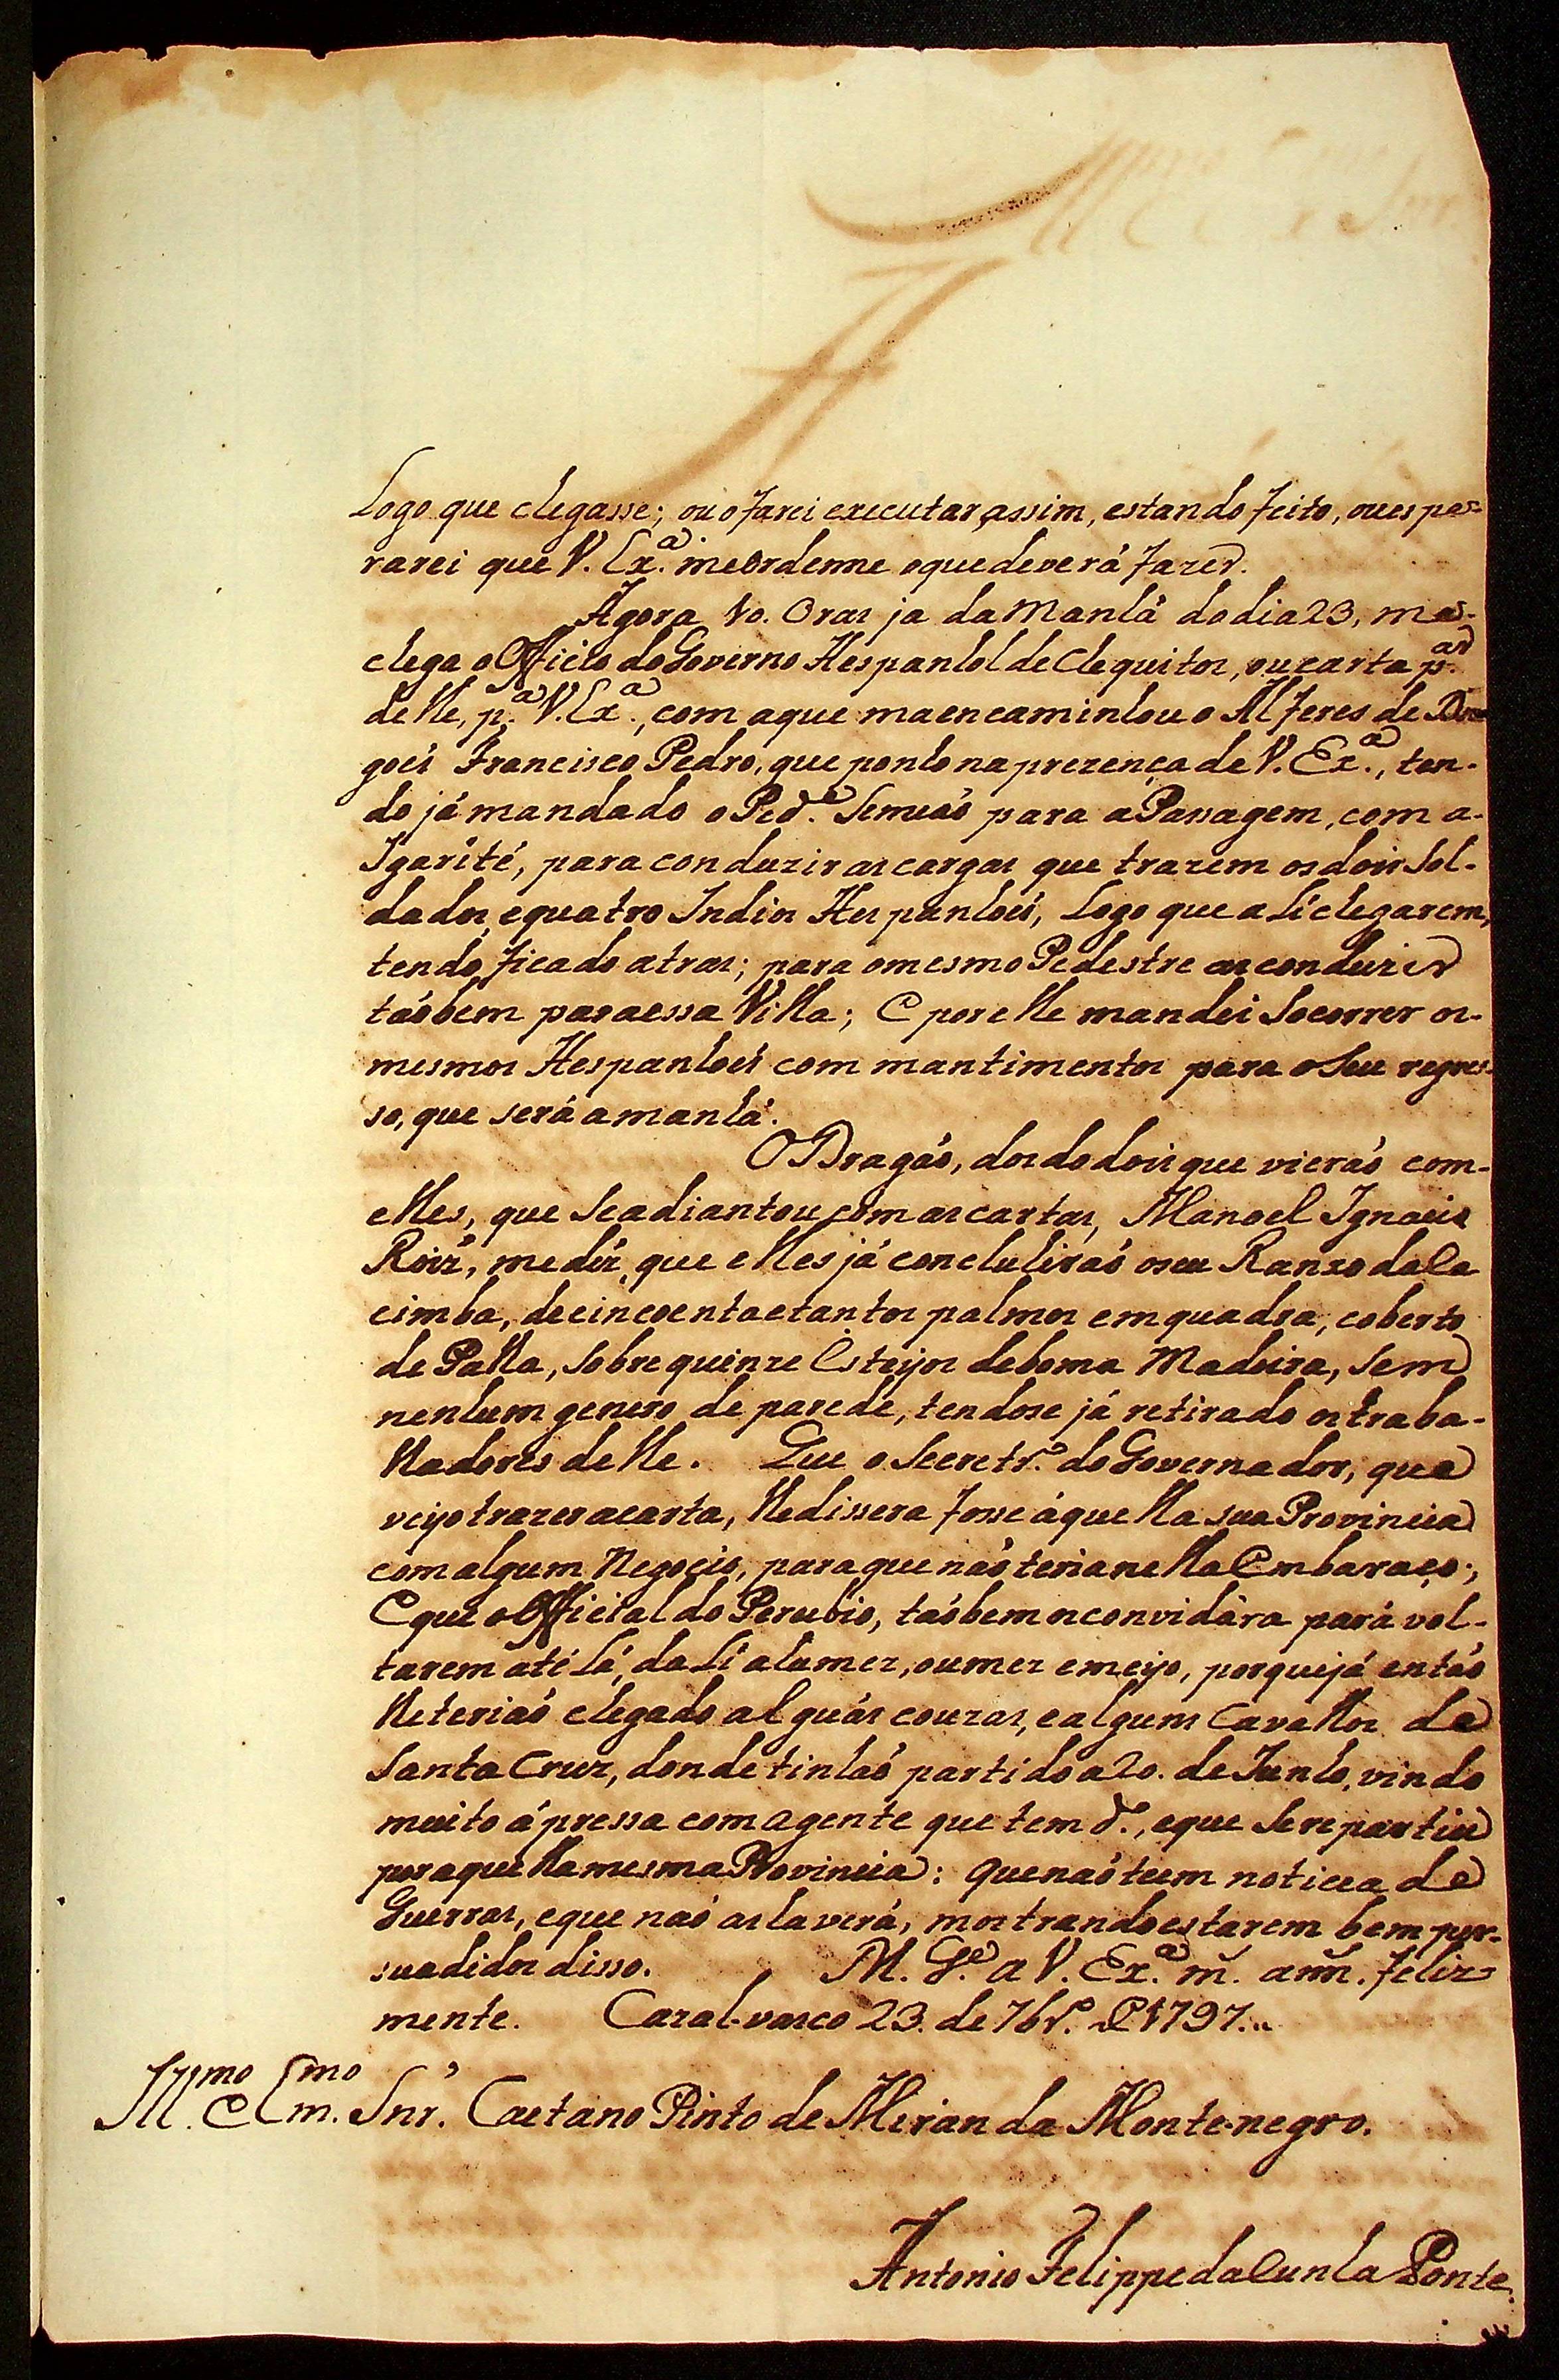 Logo que chegasse; ou o farei executar assim, estando feito, ou espe-
rarei que V. Ex.ª me ordenne o que deverá fazer.
Agora 10. Oras ja da Manhã do dia 23, me-
chega o Officio do Governo Hespanhol de Chequitos, ou carta p.ar
delle, p.ª V. Ex.ª, com a que ma encaminhou o Alferes de Dra
goẽs Francisco Pedro, que ponho na prezença de V. Ex.ª, ten-
do já mandado o Ped.e Semeaõ para a Passagem, com a-
Igarité, para conduzir as cargas que trazem os dois Sol-
dados, e quatro Indios Hespanhoẽs, Logo que ali chegarem,
tendo ficado atras; para o mesmo Pedestre as conduzir
taõbem para essa Villa; E por elle mandei Socorrer os-
mesmos Hespanhoẽs com mantimentos para o Seu regres-
so, que será amanhã.
O Dragaõ, dos do dois que vieraõ com-
elles, que Se adiantou com as cartas, Manoel Ignacio
Roiz', me diz, que elles já concluhiraõ o seu Ranxo da Ca
cimba, de cincoenta e tantos palmos em quadra, coberto
de Palha, sobre quinze Esteyos de boma Madeira, Sem
nenhum genero de parede, tendose já retirado os traba-
lhadores delle. Que o Secretr.º do Governador, que
veyo trazer a carta, lhe dissera fosse áquella sua Provincia
com algum Negocio, para que naõ teria nella Embaraço;
E que o Official do Perubio, taõbem os convidàra pará vol-
tarem até Lá, dali a hum ez, ou mez e meyo, porque já entaõ
lhe teriaõ chegado alguãs couzas, e alguns Cavallos de
Santa Cruz, donde tinhaõ partido a 20. de Junho, vindo
muito á pressa com a gente que tem d.º, e que Se repartiu
por aquella mesma Provincia: que naõ teem noticia de
Guerras, e que naõ as haverá, mostrando estarem bem per-
suadidos disso. M. G.e a V. Ex.ª m.s ann.s feliz
mente. Cazal-vasco 23. de 7br.º D 1797..
Ill.mo e Ex.mo Snr. Caetano Pinto de Miranda Monte-negro.
Antonio Felippe da Cunha Ponte.